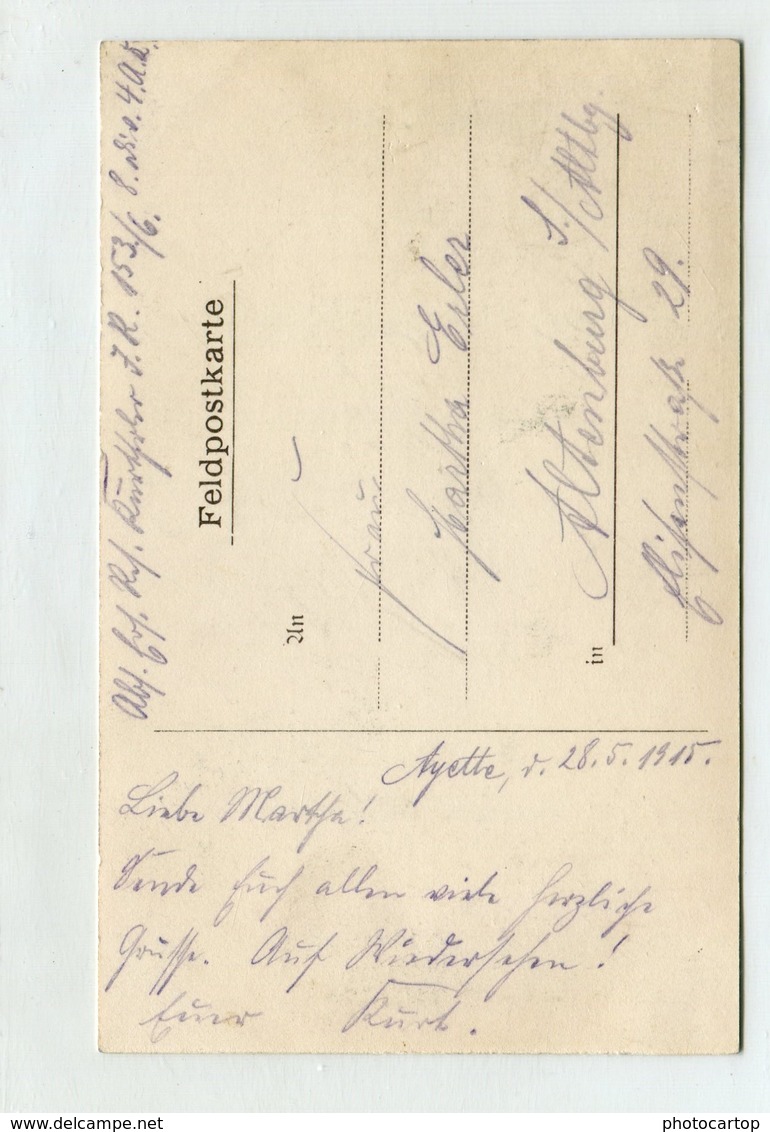 Abs. Ers. Res. Kurt J. R. 153/6. 8. Div. 4. A.K.
Feldpostkarte
An
Frau
Martha Erler
in
Altenburg S./Altbg.
29.
Ayette, d. 28.5.1915.
Liebe Martha!
Sende Euch allen viele herzliche
Grüsse. Auf Wiedersehen!
Euer Kurt.
delcampe.net
photocartop